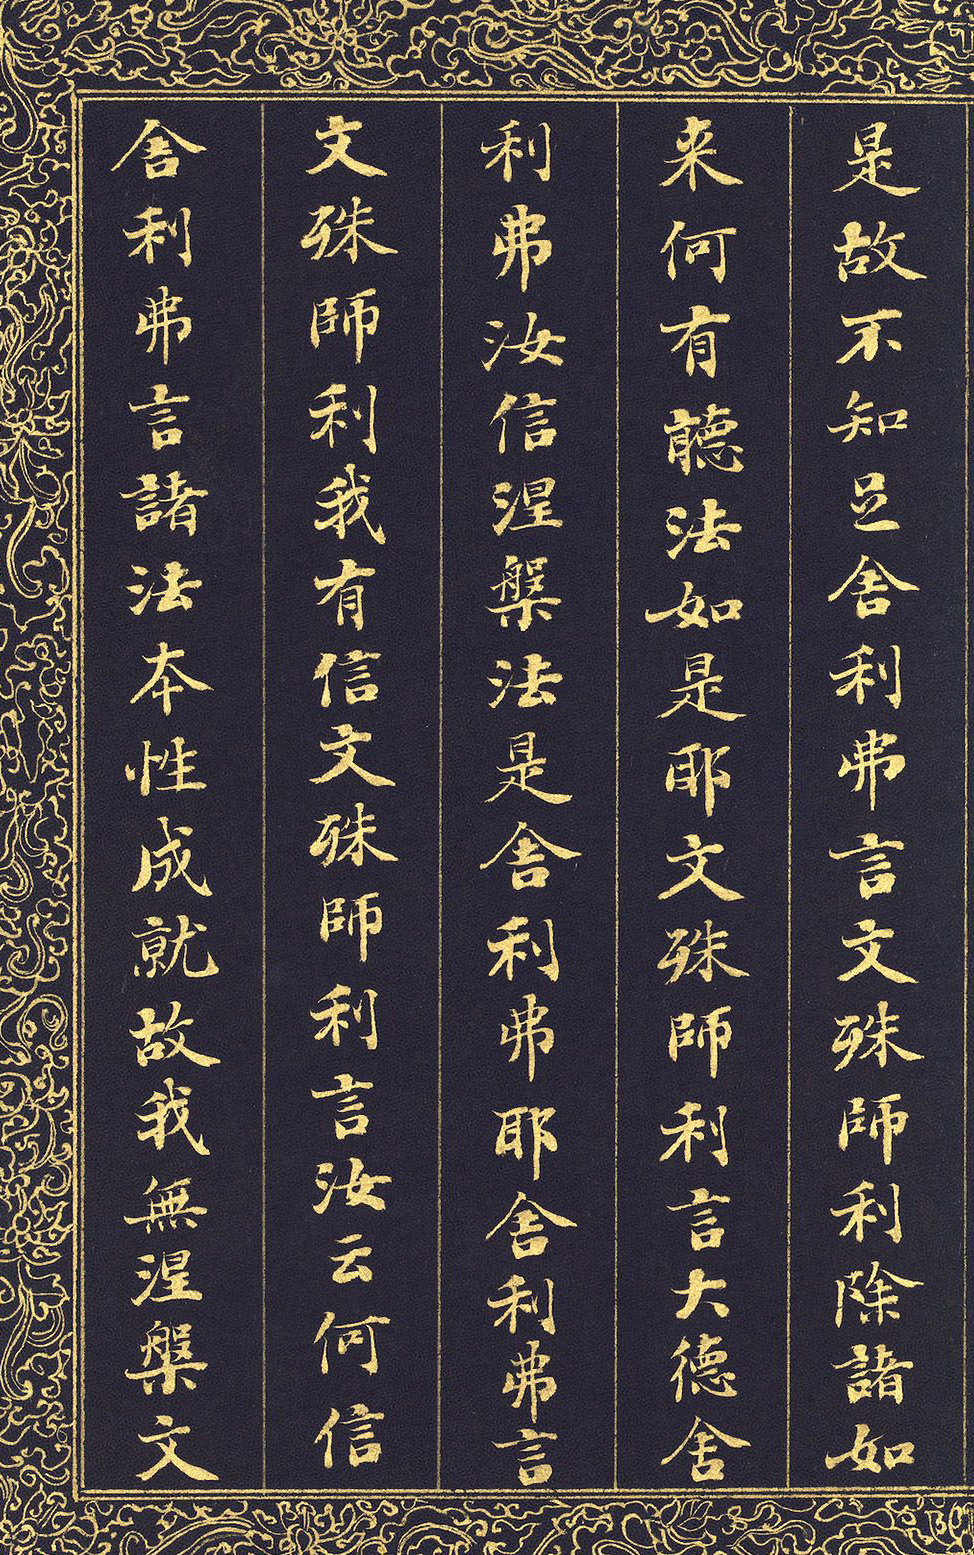 是故不知足舍利弗言文殊師利除諸如
来何有聽法如是耶文殊師利言大德舍
利弗汝信涅槃法是舍利弗耶舍利弗言
文殊師利我有信文殊師利言汝云何信
舍利弗言諸法本性成就故我無涅槃文